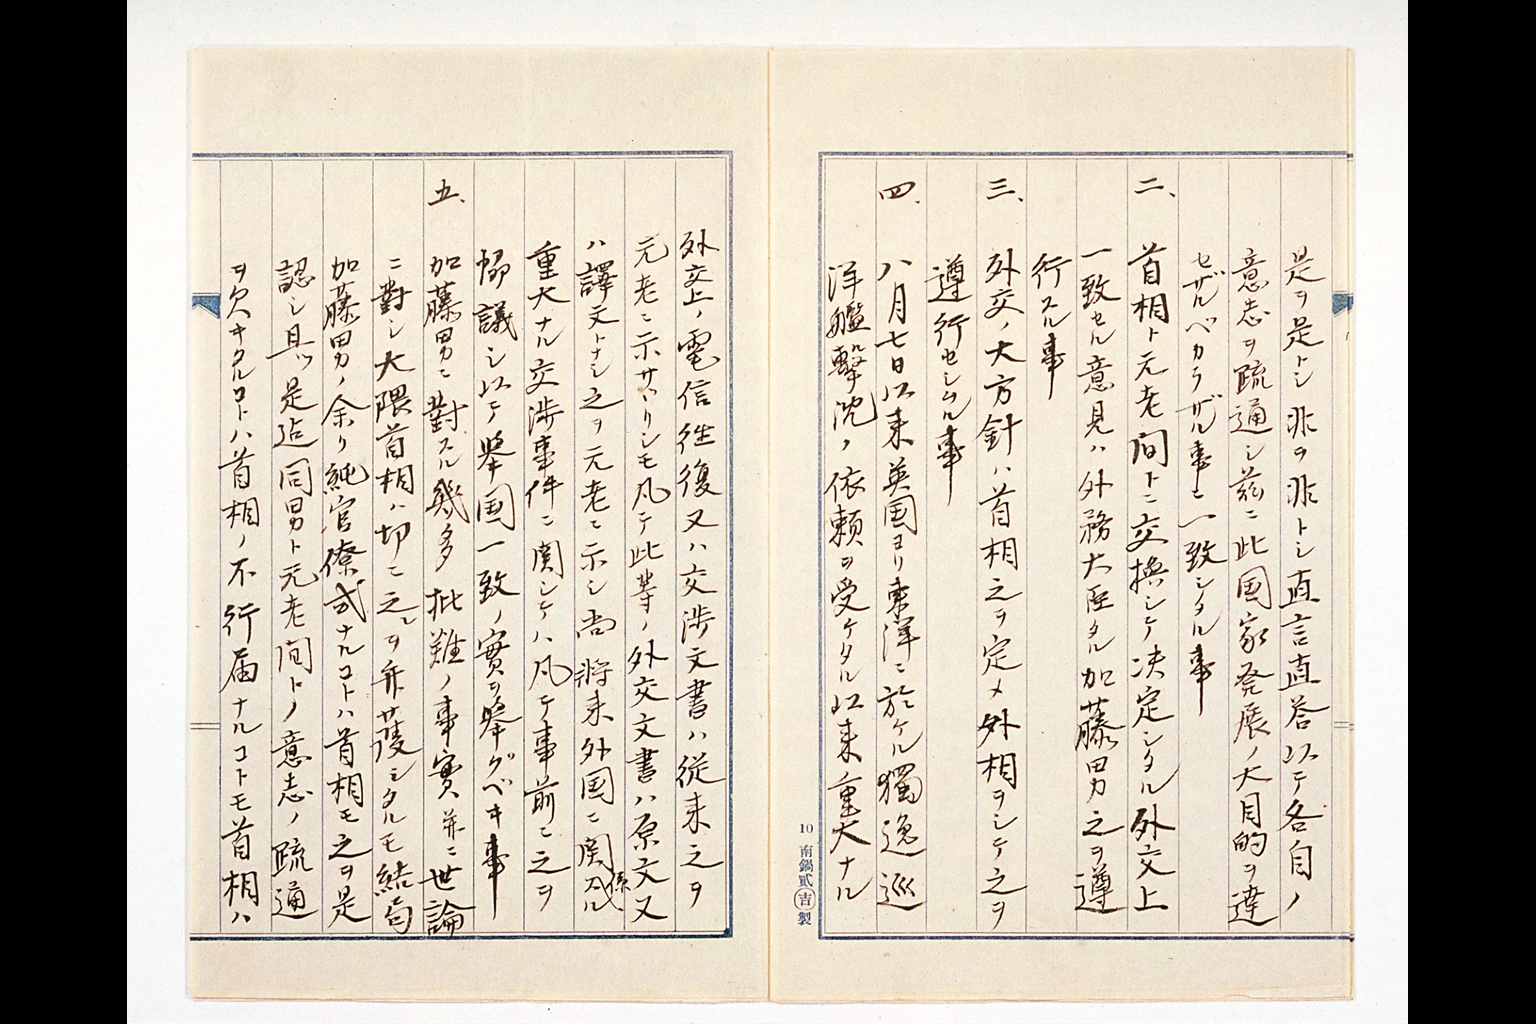 是ヲ是トシ非ヲ非トシ直言直答以テ各自ノ
意志ヲ疏通シ茲ニ此国家発展ノ大目的ヲ達
セザルベカラザル事ニ一致シタル事
二、首相ト元老間トニ交換シテ決定シタル外交上
一致セル意見ハ外務大臣タル加藤男之ヲ遵
行スル事
三、外交ノ大方針ハ首相之ヲ定メ外相ヲシテ之ヲ
遵行セシムル事
四、八月七日以来英国ヨリ東洋ニ於ケル獨逸巡
洋艦撃沈ノ依頼ヲ受ケタル以来重大ナル
外交上ノ電信往復又ハ交渉文書ハ従来之ヲ
元老ニ示サヾリシモ凡テ此等ノ外交文書ハ原文又
ハ譯文トナシ之ヲ元老ニ示シ尚将来外国ニ関係スル
重大ナル交渉事件ニ関シテハ凡テ事前ニ之ヲ
協議シ以テ挙国一致ノ實ヲ挙グベキ事
五、加藤男ニ對スル幾多批難ノ事實并ニ世論
ニ對シ大隈首相ハ切ニ之レヲ弁護シタルモ結句
加藤男ノ余リ純官僚式ナルコトハ首相モ之ヲ是
認シ且ツ是迄同男ト元老間トノ意志ノ疏通
ヲ欠キタルコトハ首相ノ不行届ナルコトモ首相ハ
10 南鍋貳 吉 製